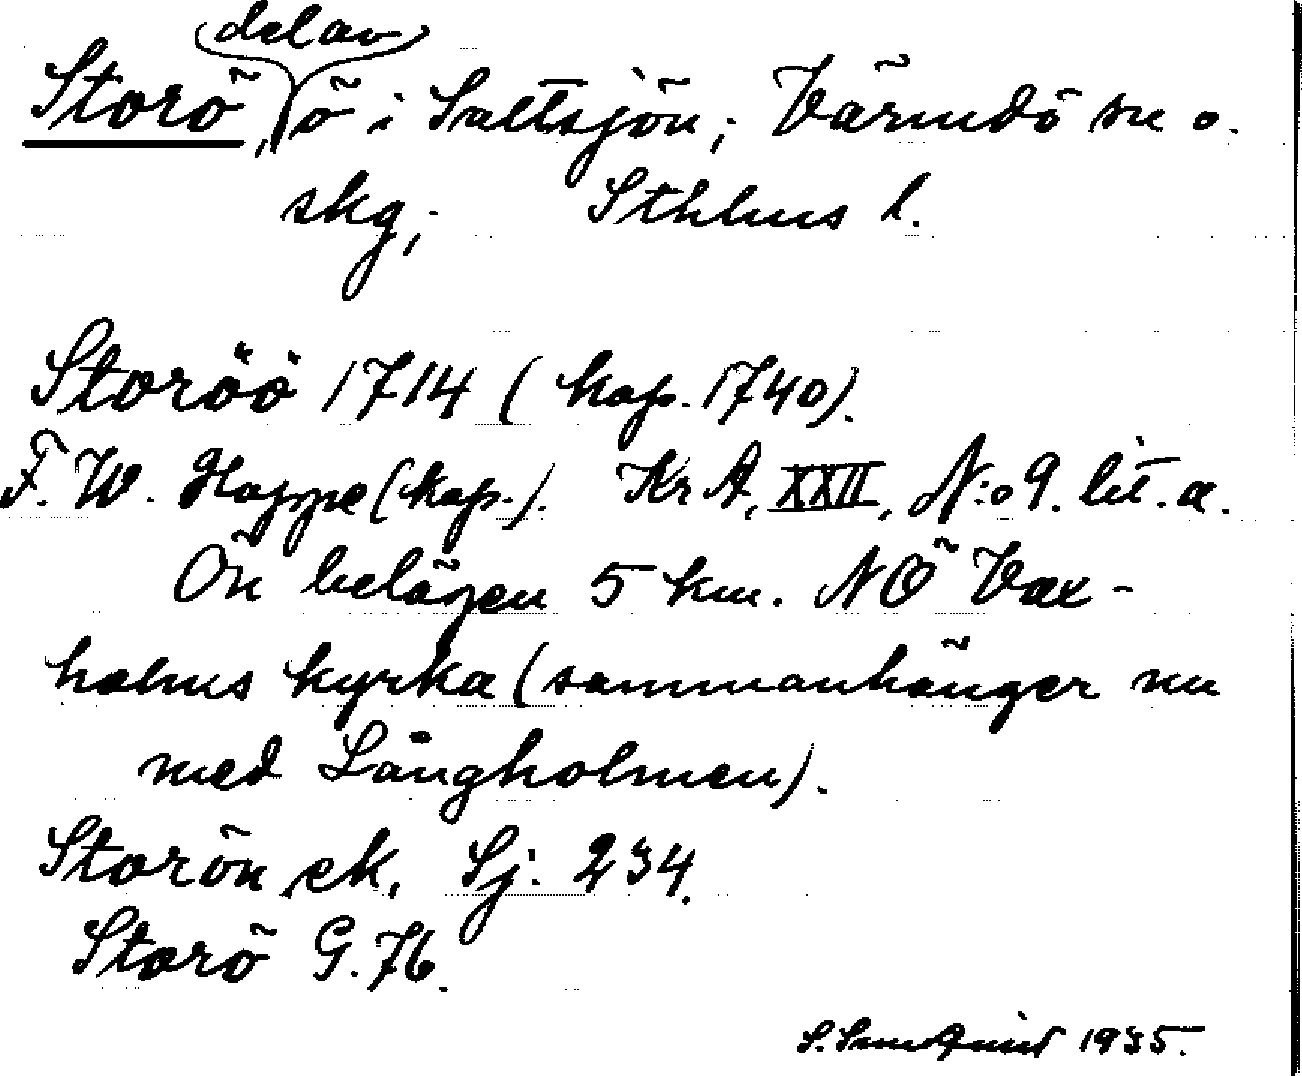 del av
Storö, ö i Saltsjön; Värmdö sn o.
skg, Sthlms l.
Storöö 1714 (kop. 1740).
F. W. Hoppe (kop.). Kr A, XXII, N:o 9. lit. a.
Ön belägen 5 km. NÖ Vax-
holms kyrka (sammanhänger nu
med Långholmen).
Storön ek, Sj. 234.
Storö G. 76.
1935.